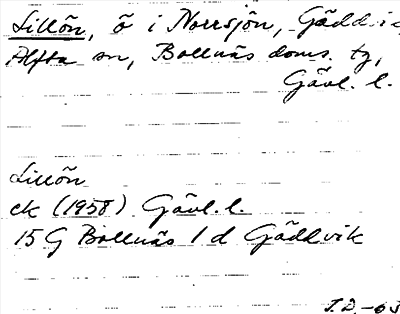 Lillön, ö i Norrsjön, Gäddvik,
Alfta sn, Bollnäs doms. tg,
Gävl. l.
Lillön
ek (1958) Gävl. l.
15 G Bollnäs 1 d Gäddvik
I.D.-63